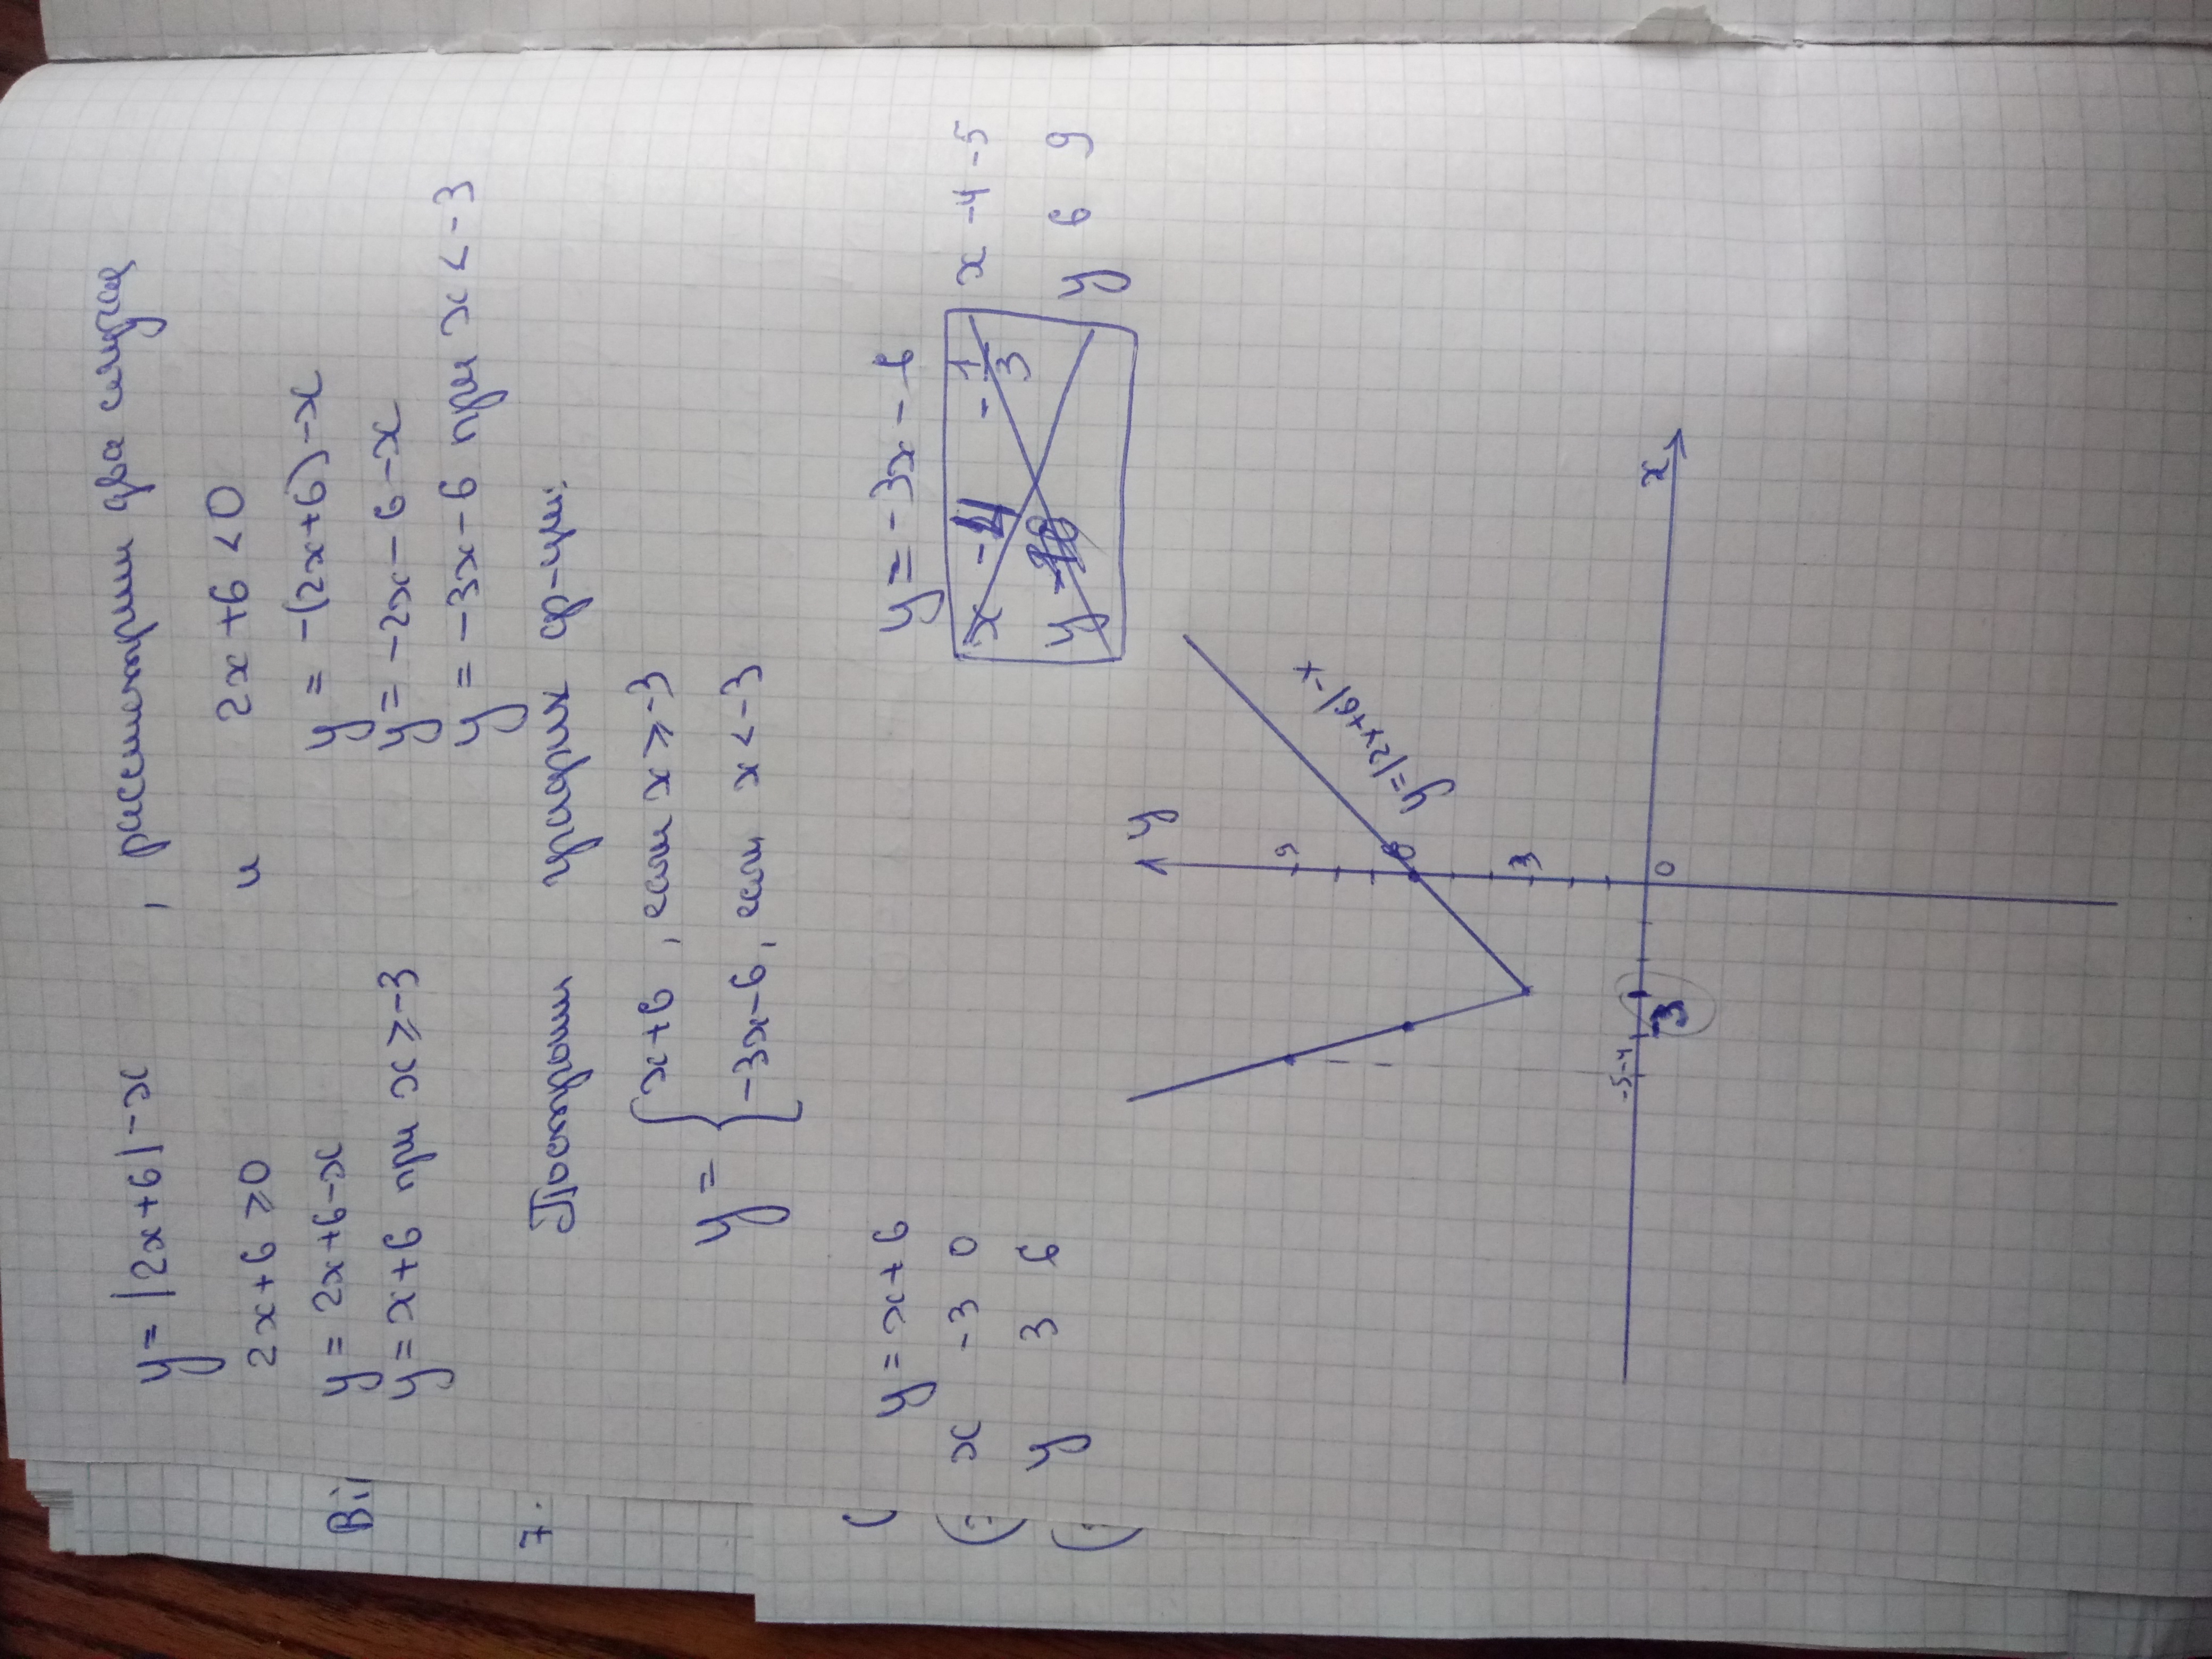 y = |2x+6| - x , рассмотрим два случая
2x+6 ≥ 0 и 2x+6 < 0
y = 2x+6-x y = -(2x+6)-x
y = x+6 при x ≥ -3 y = -2x-6-x
y = -3x-6 при x < -3
Построим график ф-ции:
y = { x+6, если x ≥ -3
-3x-6, если x < -3
y = x+6 y = -3x-6
x -3 0 x -4 -5
y 3 6 y 6 9
y
9
6
3
0
x
-5 -4
3
y=|2x+6|-x
Ві
7.